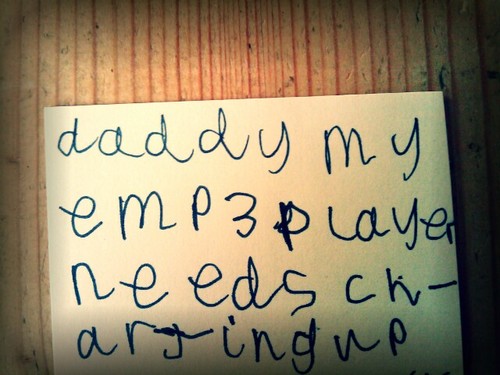 daddy my
emp3player
needs ch-
arjingup